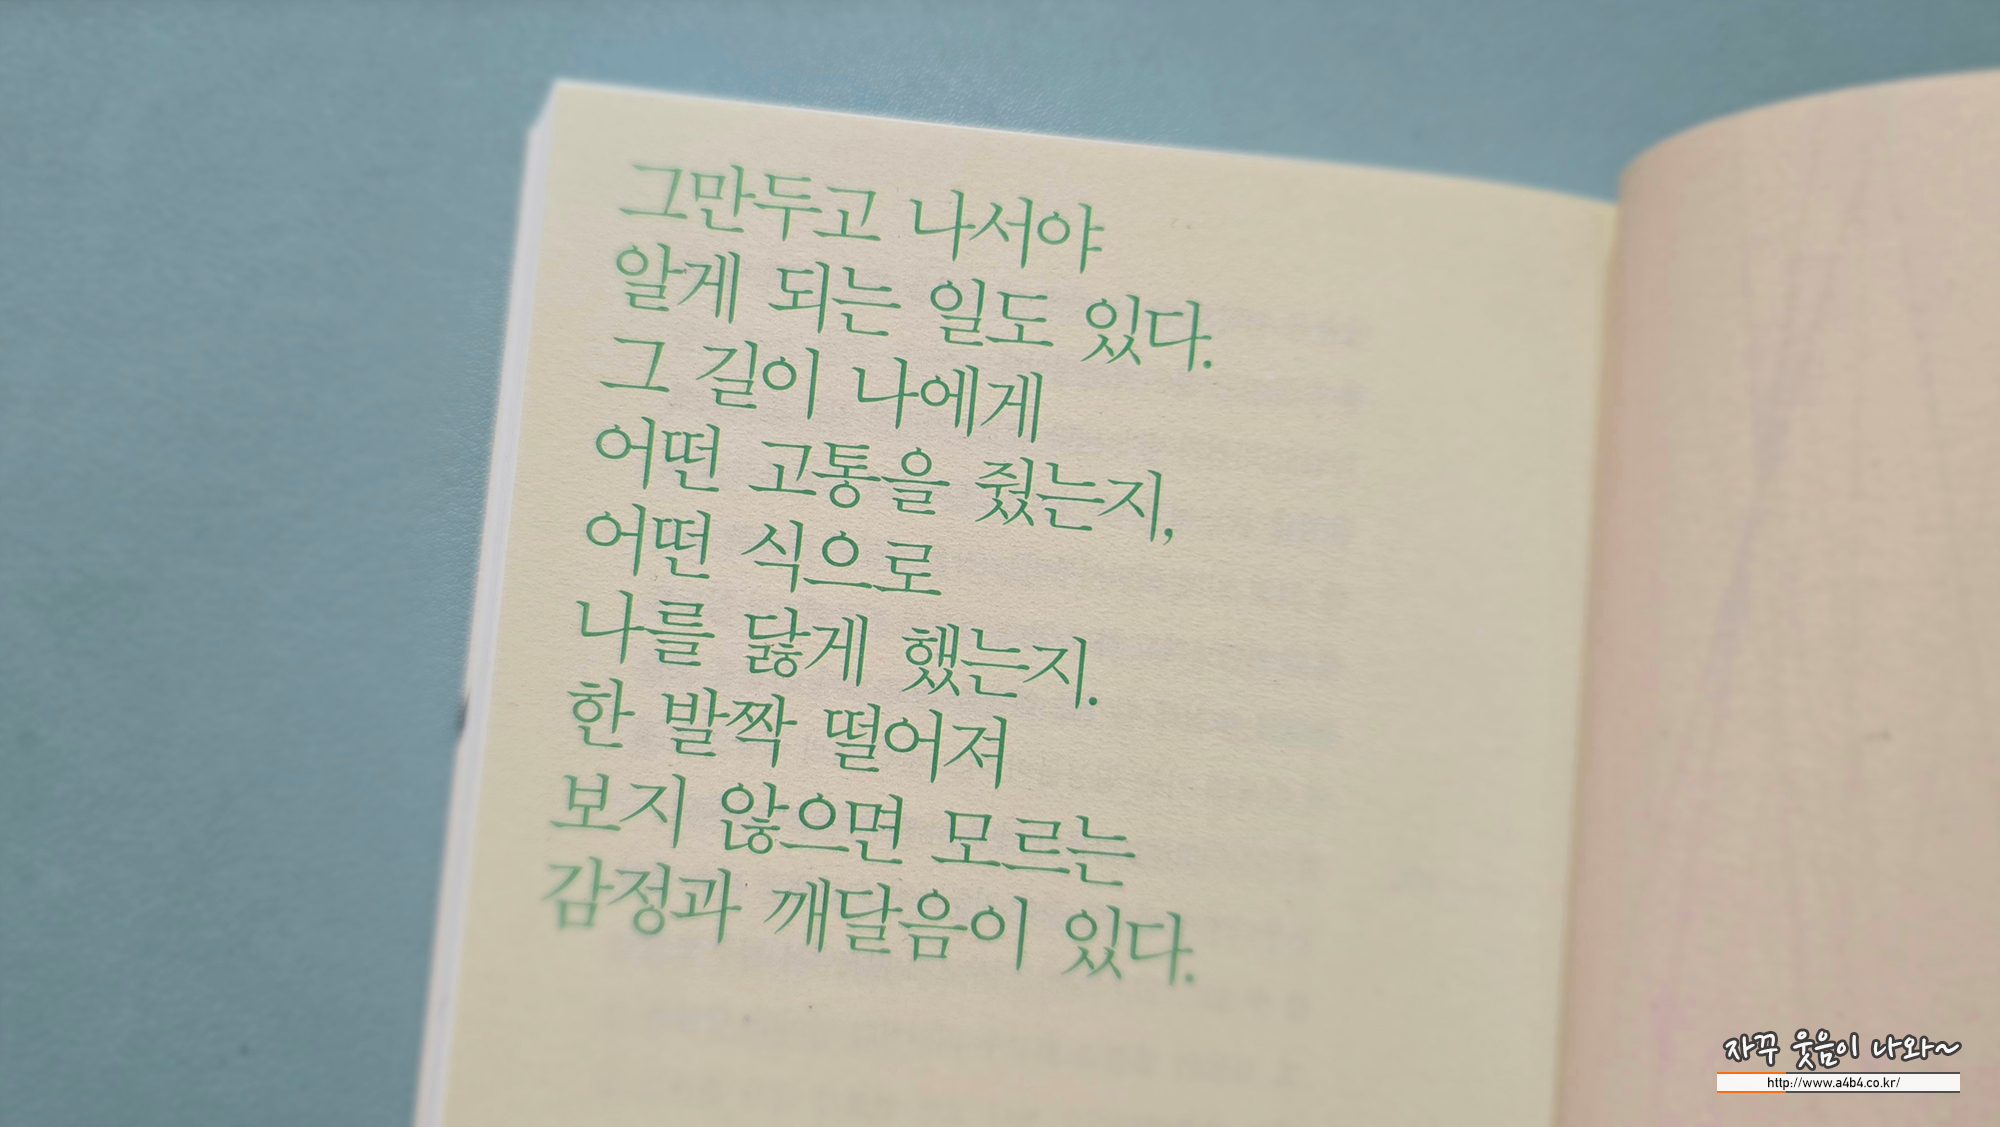 그만두고 나서야
알게 되는 일도 있다.
그 길이 나에게
어떤 고통을 줬는지,
어떤 식으로
나를 닳게 했는지.
한 발짝 떨어져
보지 않으면 모르는
감정과 깨달음이 있다.
자꾸 웃음이 나와~
http://www.a4b4.co.kr/